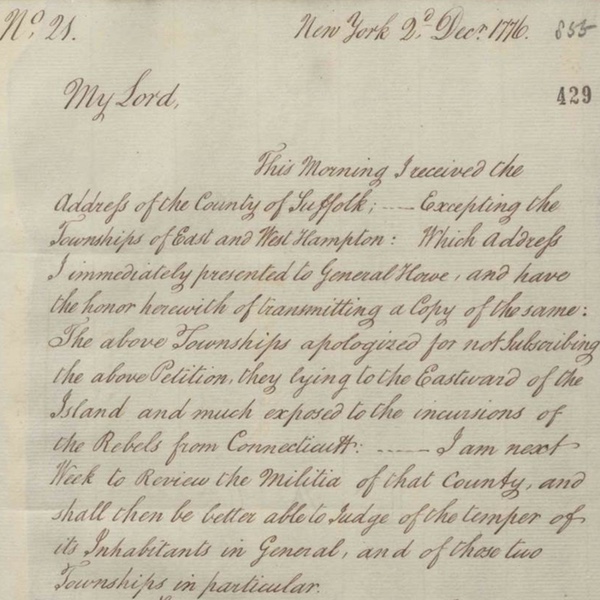 No. 21.
New York 2d. Decr. 1776. 855
429
My Lord,
This Morning I received the
Addreſs of the County of Suffolk; —— Excepting the
Townships of East and West Hampton: Which Addreſs
I immediately presented to General Howe, and have
the honor herewith of transmitting a Copy of the same:
The above Townships apologized for not Subscribing
the above Petition, they lying to the Eastward of the
Island and much exposed to the incursions of
the Rebels from Connecticutt: —— I am next
Week to Review the Militia of that County, and
shall then be better able to Judge of the temper of
its Inhabitants in General, and of those two
Townships in particular.